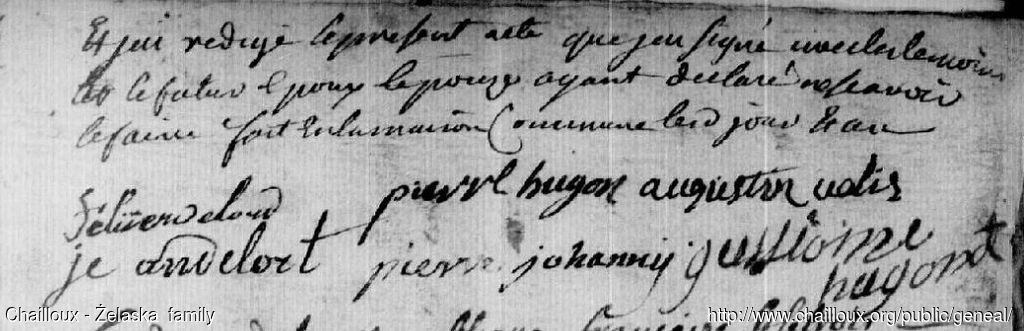 Et jai redigé le present acte que jeu signé avec les temoins
et le futur Epoux lepouze ayant declaré ne scavoir
le faire fait En la maison Commune led jour Et an
pierre hugon augustin valis
je andelort pierre johanny guiliome
hugont
Chailloux - Żelaska family
http://www.chailloux.org/public/geneal/